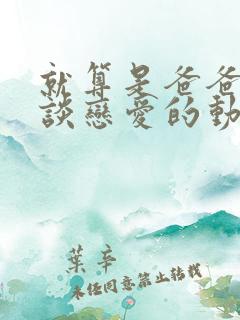 就算是爸爸
談戀愛的動
葉辛
未經同意禁止轉載